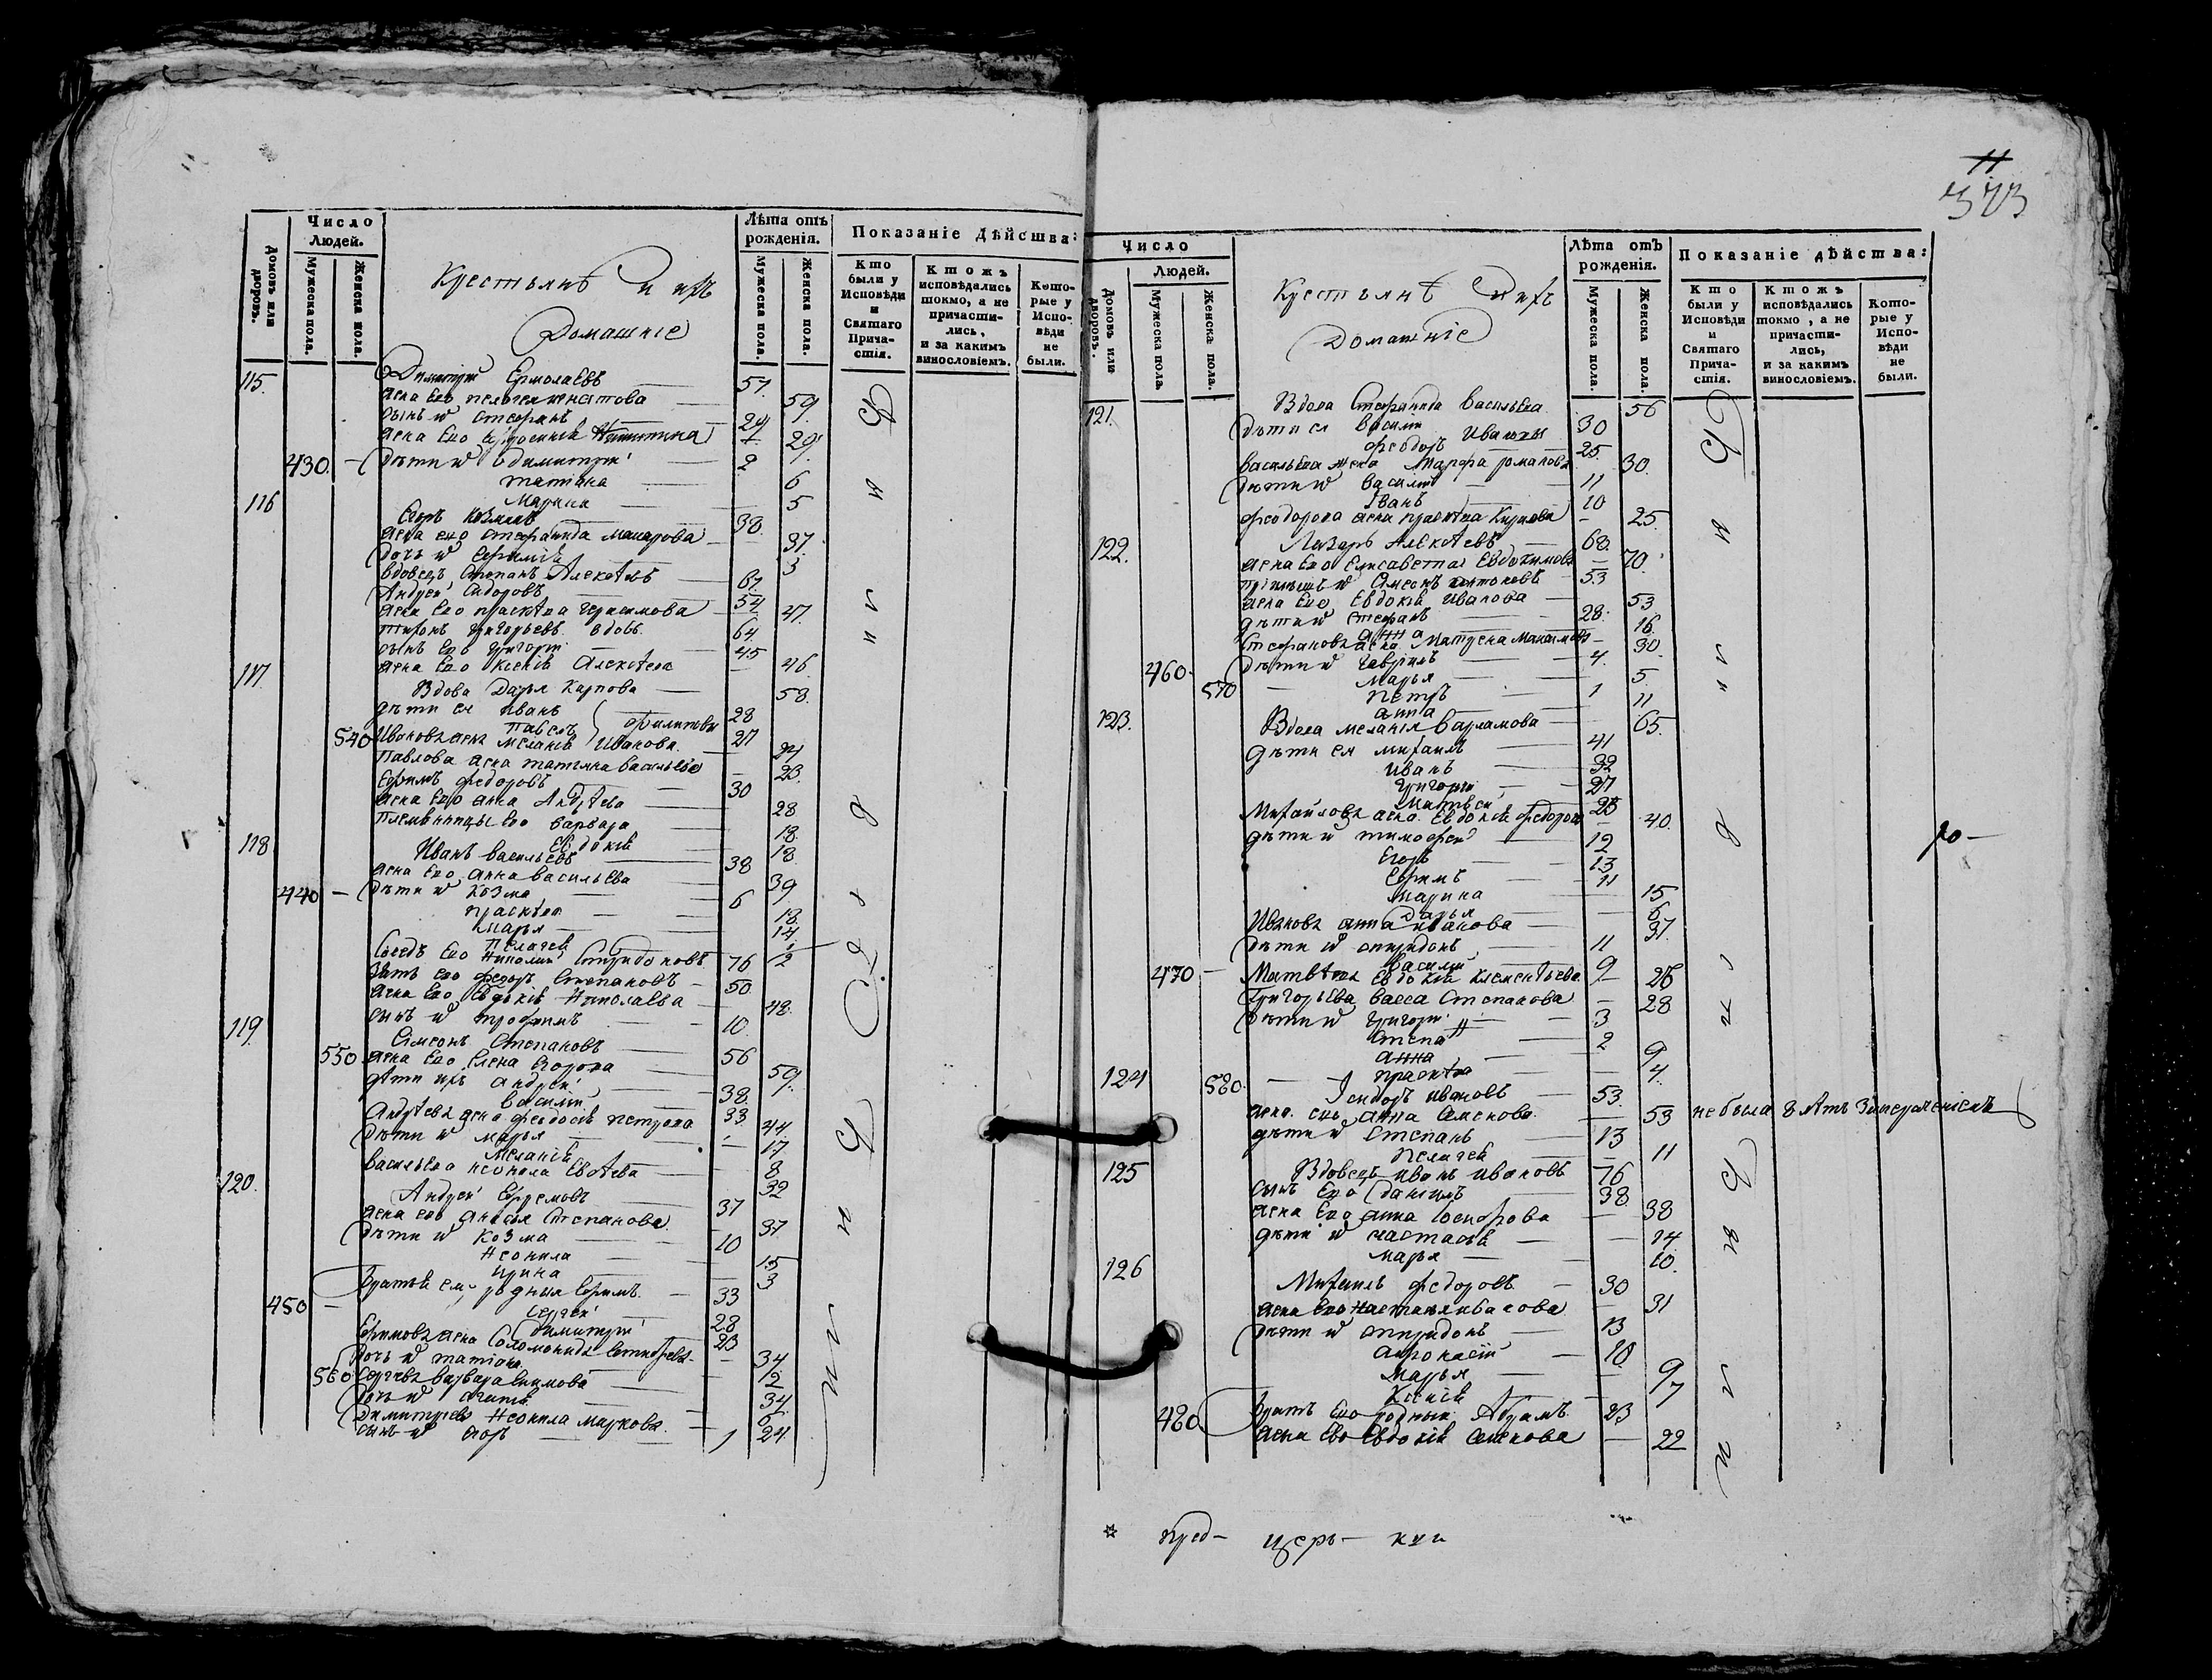 11
373
Число Людей.
Лѣта отъ рожденія.
Показаніе Дѣйства:
Домовъ или дворовъ.
Мужеска пола.
Женска пола.
Крестьянѣ и ихъ
Домашніе
Мужеска пола.
Женска пола.
Кто были у Исповѣди и Святаго Прича-стія.
Ктожъ исповѣдались токмо, а не причасти-лись, и за какимъ винословіемъ.
Кото-рые у Испо-вѣди не были.
115. Димитрій Ермолаевъ — 57.
жена Его 59
сынъ и Стефанъ — 29
жена Его 29
430 — дѣти и Димитрій — 2
татіана — 6
Марина — 5
116 38.
жена его Стефанида Макарова — 37
дочь и Ефимія 3
вдовецъ Степанъ Алексѣевъ — 67
Андрей Сидоровъ — 54
жена Его праскѣва Герасимова — 47.
тихонъ Григорьевъ вдовъ 64.
сынъ Его Григорій — 45
жена Его Ксенія Алексѣева — 46
117. Вдова Дарья Карпова — 58.
дѣти ея Иванъ 28
Павелъ филиповы 27
540 Ивановa жена Меланія Иванова — 24
Павлова жена татьяна васильева — 23.
Ефимъ федоровъ — 30
жена Его анна Андрѣева — 28
племянницы Его варвара — 18.
Евдокія 18.
118 Иванъ васильевъ — 38
жена Его анна васильева — 39
440 — дѣти и Козма — 6
праскѣва — 18.
Марья — 14
Пелагея
Сосѣдъ Его Николай Спиридоновъ 76 12
зять его федоръ Степановъ — 50
жена Его Евдокія Николаева — 48.
сынъ и трофимъ — 10.
119. Симеонъ Степановъ — 56
550 жена Его Елена Егорова — 59.
дѣти ихъ андрей — 38.
василій 33
Андрѣева жена феодосія петрова — 44
дѣти и Марья — 17
Меланія — 8
васильева неонила Евсѣева — 32
120. Андрей Ефремовъ — 37
жена его анисья Степанова — 37
дѣти и Козма — 10
Неонила — 15
ирина — 3
братья ему родныя Ефимъ. — 33
450 — Сергей 28
Димитрій 23
Ефимова жена Соломонида 34
дочь и татіана 12
560 Сергѣева варвара Екимова — 34
дочь и агапія 6
Димитріева Неонила Маркова. — 24.
сынъ и 1
Число Людей.
Лѣта отъ рожденія.
Показаніе дѣйства:
Домовъ или дворовъ.
Мужеска пола.
Женска пола.
Крестьянѣ и ихъ
Домашніе
Мужеска пола.
Женска пола.
Кто были у Исповѣди и Святаго Прича-стія.
Ктожъ исповѣдались токмо, а не причасти-лись, и за какимъ винословіемъ.
Кото-рые у Испо-вѣди не были.
121. Вдова Стефанида васильева 56
дѣти ея василій 30
феодоръ Ивановы 25.
васильева жена Марфа романова 30.
дѣти и василій — 11
Иванъ — 10
феодорова жена праскѣва Карпова — 25.
122. Лазарь Алексѣевъ — 68.
жена Его Елисавета Евдокимова — 70.
Симеонъ антоновъ — 53
жена Его Евдокія Иванова — 53
дѣти и Стефанъ — 28.
анна 16.
Стефанова жена Матрена Максимова — 30.
460. дѣти и Гавріилъ — 4.
Марья — 5.
570 Петръ — 1
анна — 11
123. Вдова меланія варламова — 65.
дѣти ея михаилъ — 41
Иванъ — 32
Григорій — 27
Матвѣй 25
Михайлова жена Евдокія федорова — 40.
дѣти и тимофей — 12
Егоръ — 13
Ефимъ — 11
Марина — 15
Дарья 6
Иванова анна иванова — 37.
дѣти и спиридонъ — 11
василій 9
470 — Матвѣева Евдокія Клементьева — 26
Григорьева васса Степанова — 28
дѣти и Григорій — 3
2
анна — 9
праскѣва — 4.
124 580. Ісидоръ ивановъ — 53.
жена его анна Семенова. — 53 не была 8 лѣтъ
дѣти и Степанъ — 13
Пелагея — 11
125 Вдовецъ иванъ ивановъ — 76
сынъ Его Даніилъ 38.
жена Его анна Іосифова — 38
дѣти и настасія — 14
марья — 10.
126 Михаилъ федоровъ. — 30
жена Его 31
дѣти и спиридонъ — 13
афонасій — 10.
Марья — 9
Ксенія — 7
480 братъ Его родный Абрамъ. 23
жена Его Евдокія Семенова — 22
ро-
пред- церк- кви